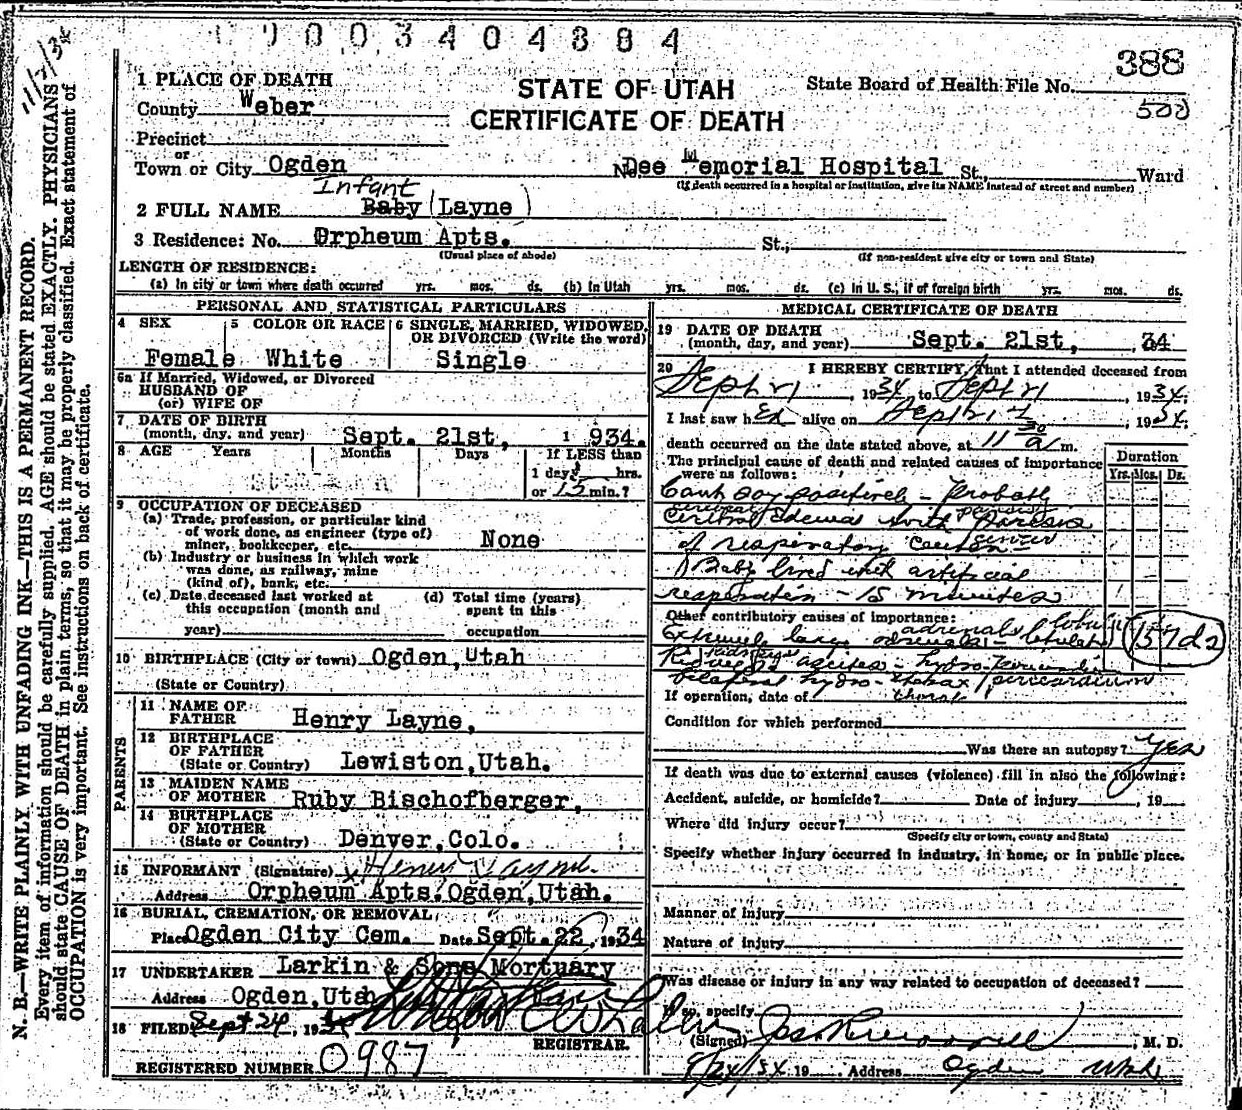 0003404884
11/7/34
388
500
STATE OF UTAH
CERTIFICATE OF DEATH
State Board of Health File No.
1 PLACE OF DEATH
County Weber
Precinct
or
Town or City Ogden No. Dee Memorial Hospital St., Ward
(If death occurred in a hospital or institution, give its NAME instead of street and number)
Infant
2 FULL NAME Baby (Layne)
3 Residence: No. Orpheum Apts. St.,
(Usual place of abode) (If non-resident give city or town and State)
LENGTH OF RESIDENCE:
(a) In city or town where death occurred yrs. mos. ds. (b) In Utah yrs. mos. ds. (c) In U. S., if of foreign birth yrs. mos. ds.
PERSONAL AND STATISTICAL PARTICULARS
4 SEX 5 COLOR OR RACE 6 SINGLE, MARRIED, WIDOWED, OR DIVORCED (Write the word)
Female White Single
6a If Married, Widowed, or Divorced
HUSBAND OF
(or) WIFE OF
7 DATE OF BIRTH
(month, day, and year) Sept. 21st, 1934.
8 AGE Years Months Days If LESS than
1 day, hrs.
or 15 min.?
9 OCCUPATION OF DECEASED
(a) Trade, profession, or particular kind
of work done, as engineer (type of)
miner, bookkeeper, etc. None
(b) Industry or business in which work
was done, as railway, mine
(kind of), bank, etc.
(c) Date deceased last worked at
this occupation (month and
year)
(d) Total time (years)
spent in this
occupation
10 BIRTHPLACE (City or town) Ogden, Utah
(State or Country)
PARENTS
11 NAME OF
FATHER Henry Layne,
12 BIRTHPLACE
OF FATHER
(State or Country) Lewiston, Utah.
13 MAIDEN NAME
OF MOTHER Ruby Bischofberger,
14 BIRTHPLACE
OF MOTHER
(State or Country) Denver, Colo.
15 INFORMANT (Signature) Henry Layne
Address Orpheum Apts. Ogden, Utah.
16 BURIAL, CREMATION, OR REMOVAL
Place Ogden City Cem. Date Sept. 22, 1934
17 UNDERTAKER Larkin & Sons Mortuary
Address Ogden, Utah
18 FILED Sept 24, 1934
REGISTRAR.
REGISTERED NUMBER 0987
MEDICAL CERTIFICATE OF DEATH
19 DATE OF DEATH
(month, day, and year) Sept. 21st, 34
20 I HEREBY CERTIFY, That I attended deceased from
Sept 21, 1934, to Sept 21, 1934.
I last saw her alive on Sept 21, 1934.
death occurred on the date stated above, at 11 30 a m.
The principal cause of death and related causes of importance
were as follows:
Duration
Yrs. Mos. Ds.
Cant say positively - Probably
cerebral paresis
cerebral edema with Paresis
center
of respiratory center
Baby lived with artificial
respiration - 15 minutes
Other contributory causes of importance:
adrenals lobulated
Extremely large adrenals - lobulated
157d2
Kidneys
Kidneys ascites - hydro-pericardium
bilateral hydro-thorax pericardium
thorax
If operation, date of
Condition for which performed
Was there an autopsy? Yes
If death was due to external causes (violence) fill in also the following:
Accident, suicide, or homicide? Date of injury , 19
Where did injury occur?
(Specify city or town, county and State)
Specify whether injury occurred in industry, in home, or in public place.
Manner of Injury
Nature of Injury
Was disease or injury in any way related to occupation of deceased?
If so, specify
(Signed) , M. D.
9/24/34 19 , Address Ogden Utah
N. B.—WRITE PLAINLY, WITH UNFADING INK—THIS IS A PERMANENT RECORD.
Every item of information should be carefully supplied. AGE should be stated EXACTLY. PHYSICIANS
should state CAUSE OF DEATH in plain terms, so that it may be properly classified. Exact statement of
OCCUPATION is very important. See instructions on back of certificate.